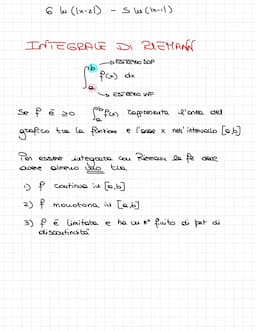 6 ln(|x-2|) - 5 ln(|x-1|)
INTEGRALE DI RIEMANN
b → ESTREMO SUP
∫ f(x) dx
a → ESTREMO INF
Se f è ≥0 ∫ₐᵇ f(x) rappresenta l'area del
grafico tra la funzione e l'asse x nell'intervallo [a,b]
Per essere integrata con Riemann la fz deve
avere almeno una tra
1) f continua in [a,b]
2) f monotona in [a,b]
3) f è limitata e ha un n° finito di pt di
discontinuità